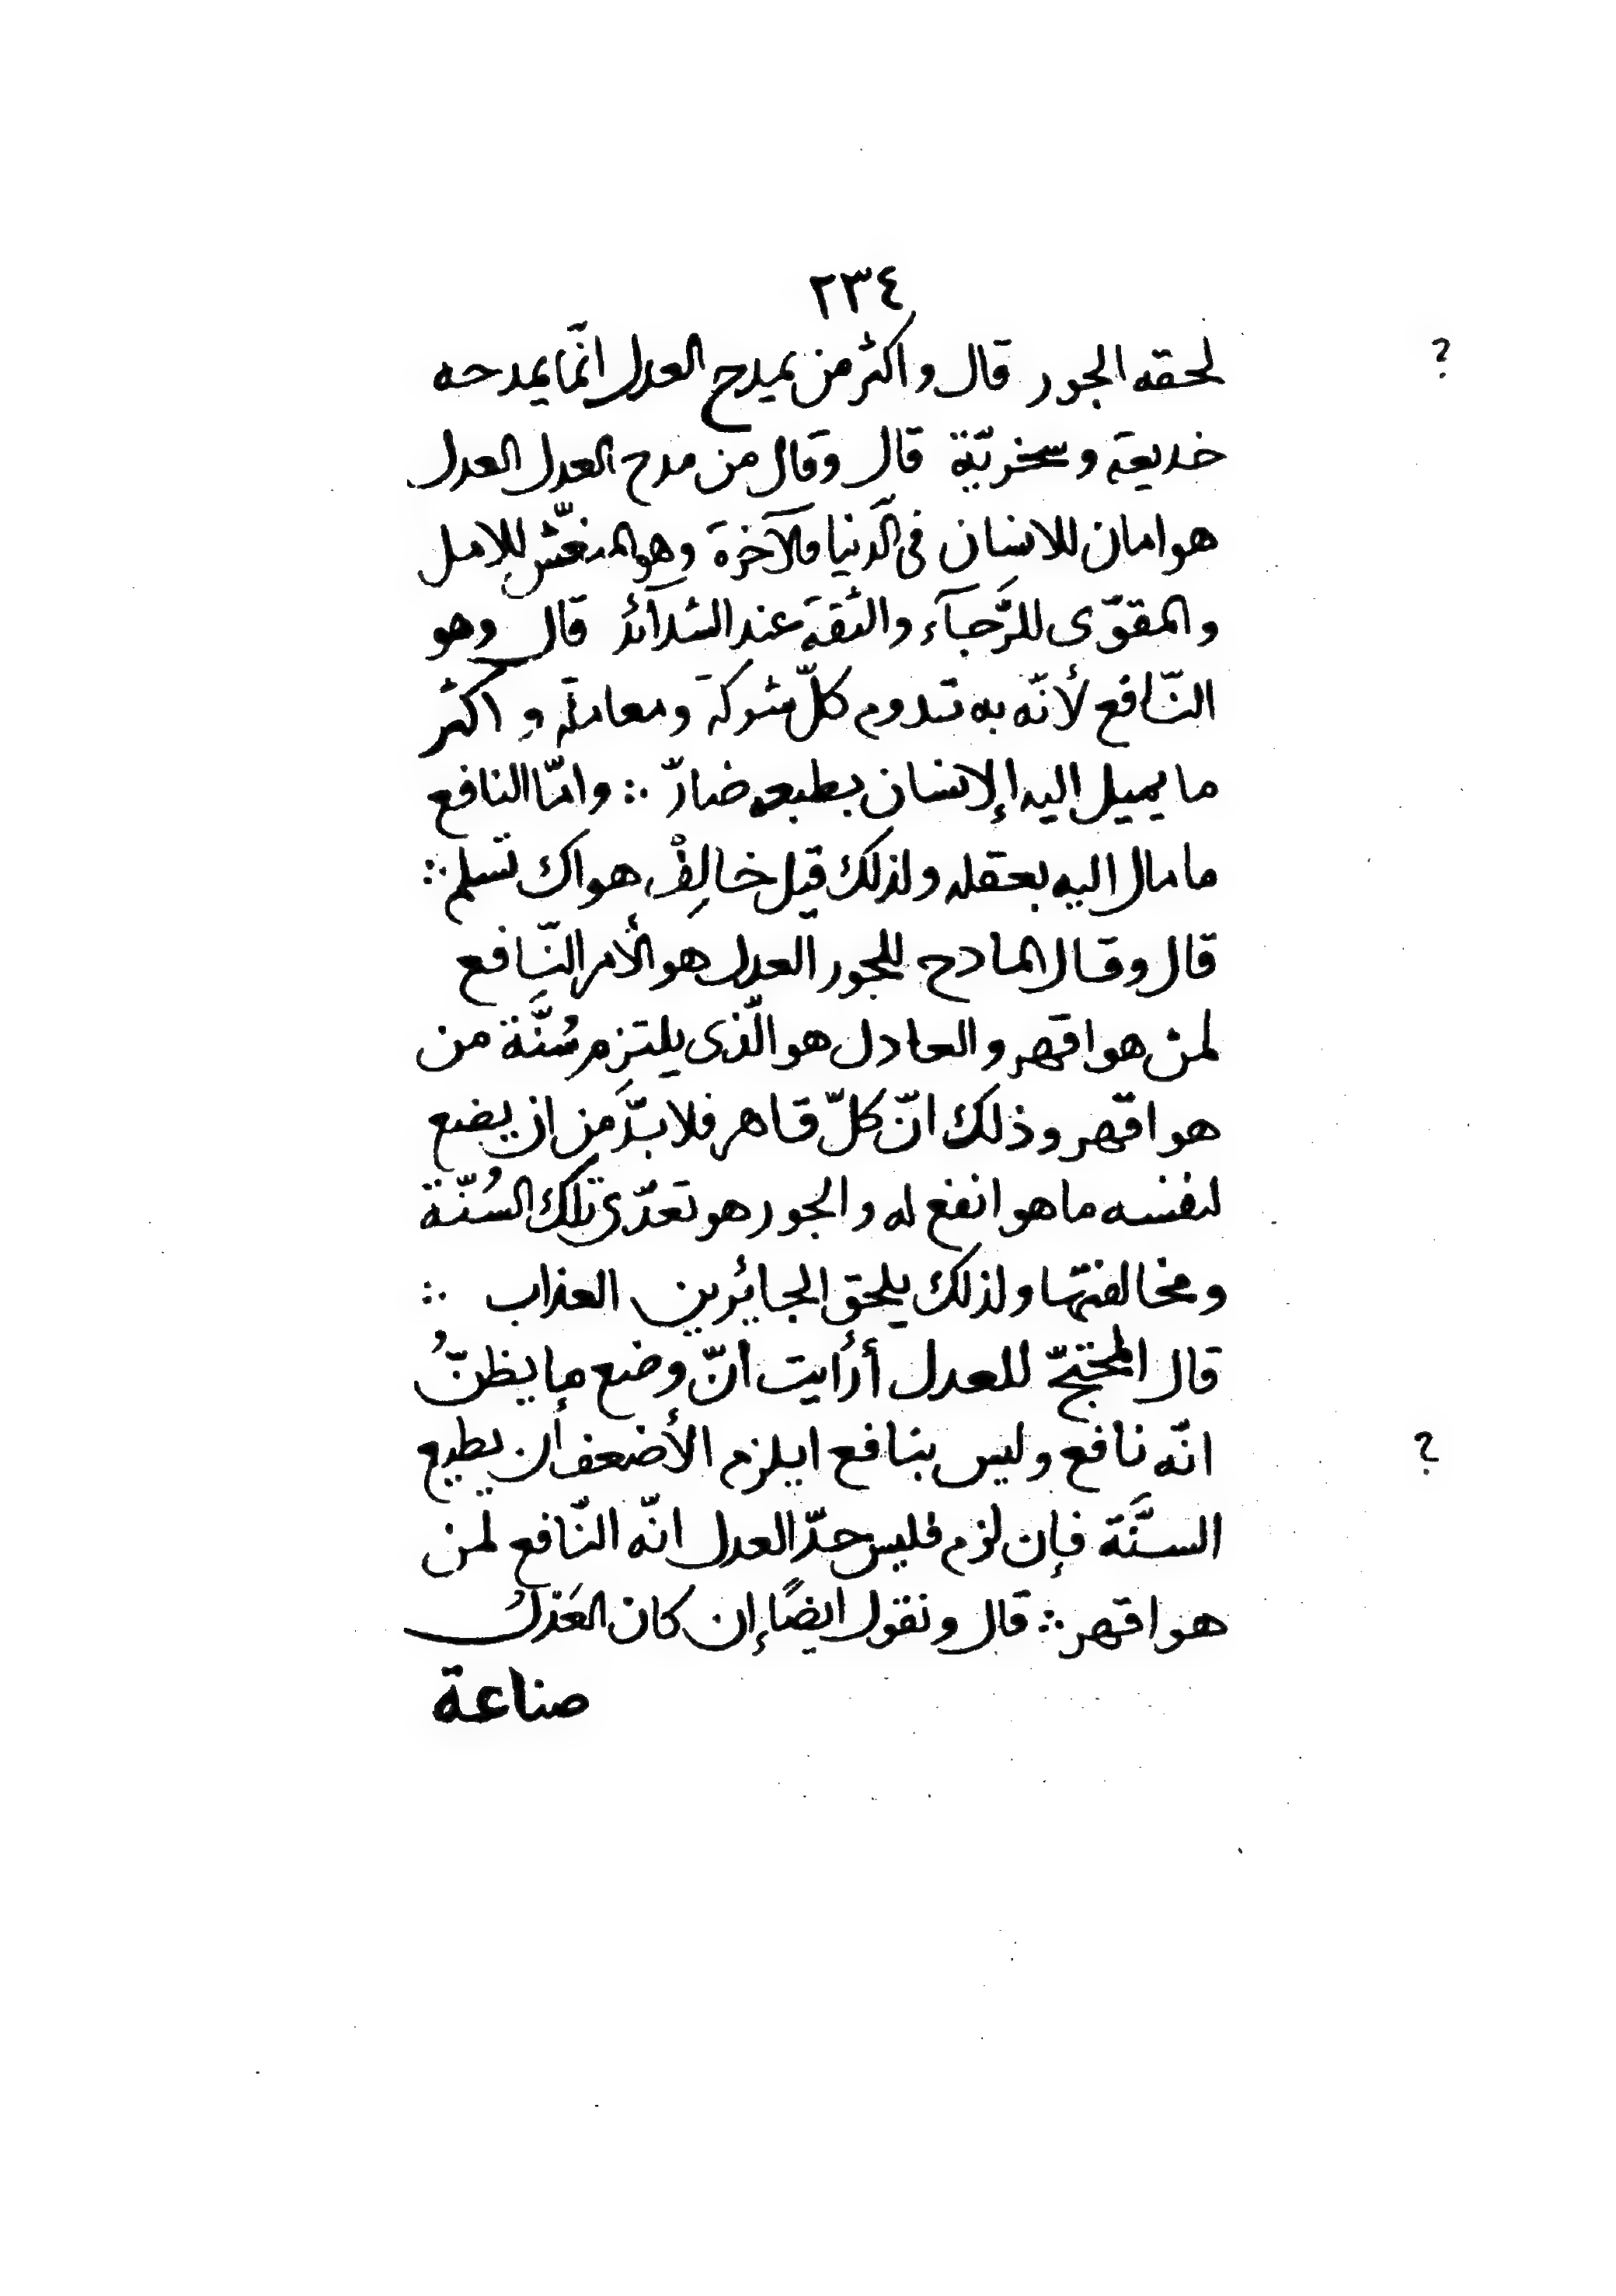 ٢٣٤
لحقه الجور قال واكثر من يمدح العدل انّما يمدحه
?
خديعة وسخريّة قال وقال من مدح العدل العدل
هو امان للانسان فى الدّنيا والآخرة وهو المنعّش للامل
والمقوّى للرَّجآء والثقة عند الشدآئد قال وهو
النّافع لأنّه به تدوم كلّ شركة ومعاملة و اكثر
ما يميل اليه الإنسان بطبعه ضارّ ∴ وامّا النافع
ما مال اليه بعقله ولذلك قيل خالِفْ هواك تسلم ∴
قال وقال المادح للجور العدل هو الأمر النّافع
لمن هو اقهر والعادل هو الّذى يلتزم سُنَّة من
هو اقهر وذلك انّ كلّ قاهر فلا بدَّ من ان يضع
لنفسه ما هو انفع له والجور هو تعدّى تلك السُنّة
ومخالفتها ولذلك يلحق الجائرين العذاب ∴
قال المحتجّ للعدل أرأيت انّ وضع ما يظنُّ
انّه نافع وليس بنافع ايلزم الأضعف أن يطيع
?
السنَّة فإن لزم فليس حدّ العدل انّه النّافع لمن
هو اقهر ∴ قال ونقول ايضًا إن كان العَدْلُ
صناعة